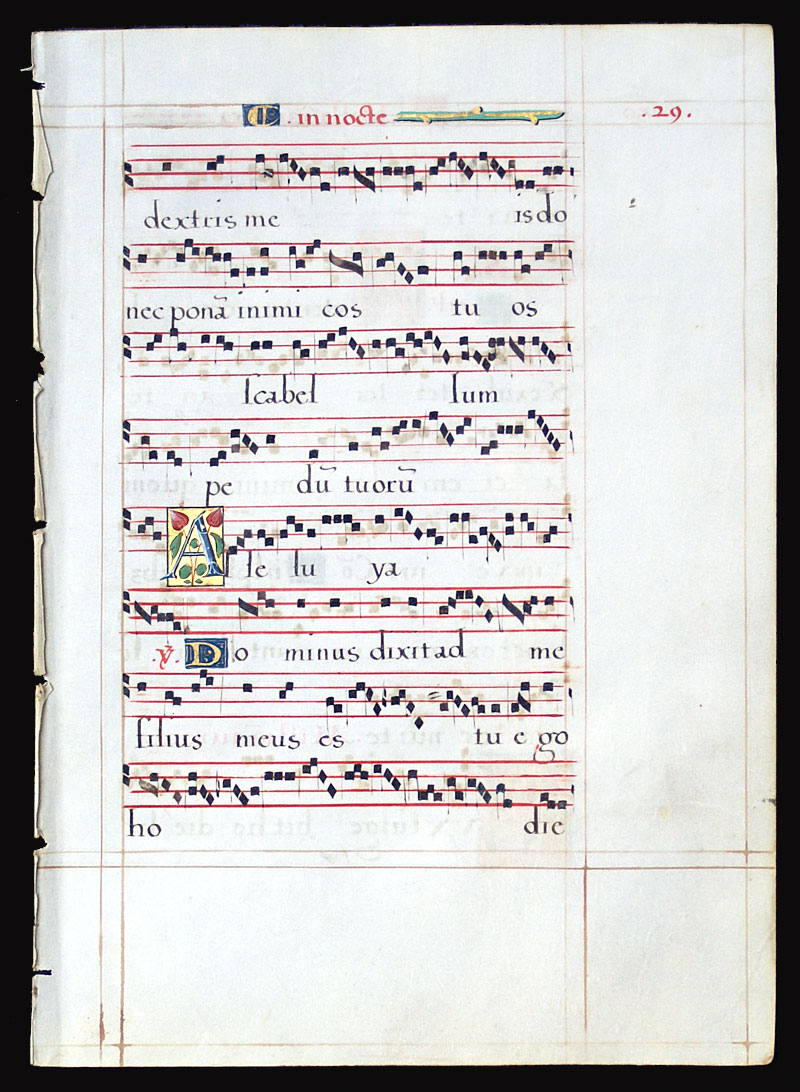 . in nocte .29.
dextris me is do
nec ponā inimi cos tu os
scabel lum
pe dū tuorū
A l le lu ya
℣. Do minus dixit ad me
filius meus es tu ego
ho die